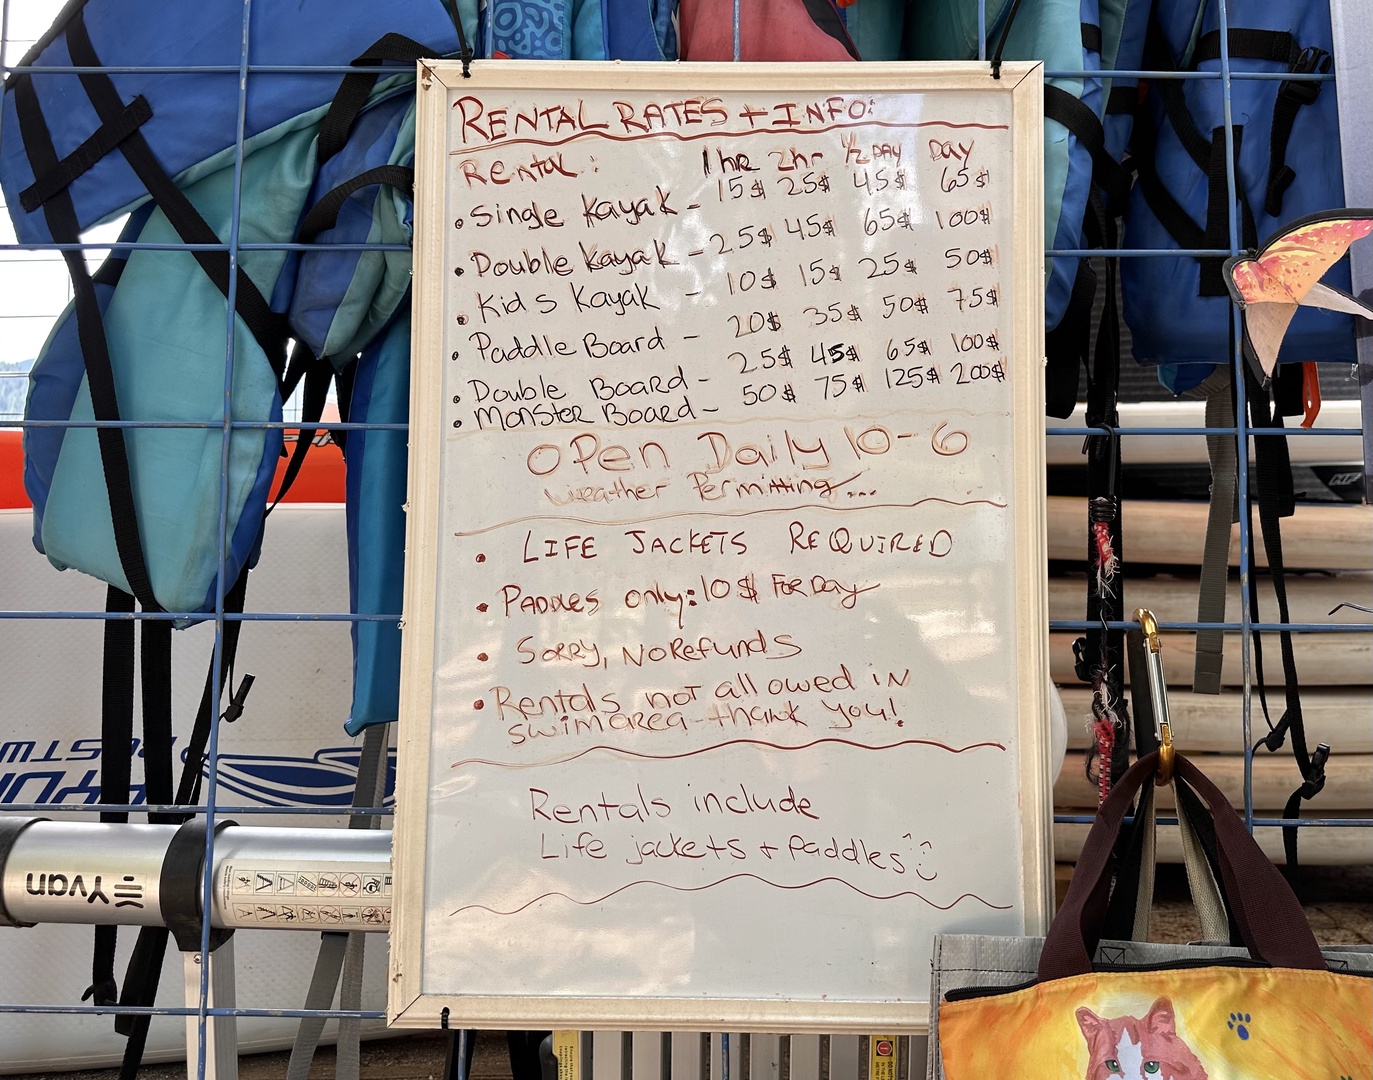 RENTAL RATES + INFO:
Rental: 1hr 2hr 1/2 DAY DAY
• Single Kayak - 15$ 25$ 45$ 65$
• Double Kayak - 25$ 45$ 65$ 100$
• Kids Kayak - 10$ 15$ 25$ 50$
• Paddle Board - 20$ 35$ 50$ 75$
• Double Board - 25$ 45$ 65$ 100$
• Monster Board - 50$ 75$ 125$ 200$
OPen Daily 10-6
weather Permitting...
• LIFE JACKETS REQUIRED
• PADDLES only: 10$ For Day
• SORRY, No Refunds
• Rentals not allowed in
swim area - thank you!
Rentals include
Life jackets + Paddles
Yvan